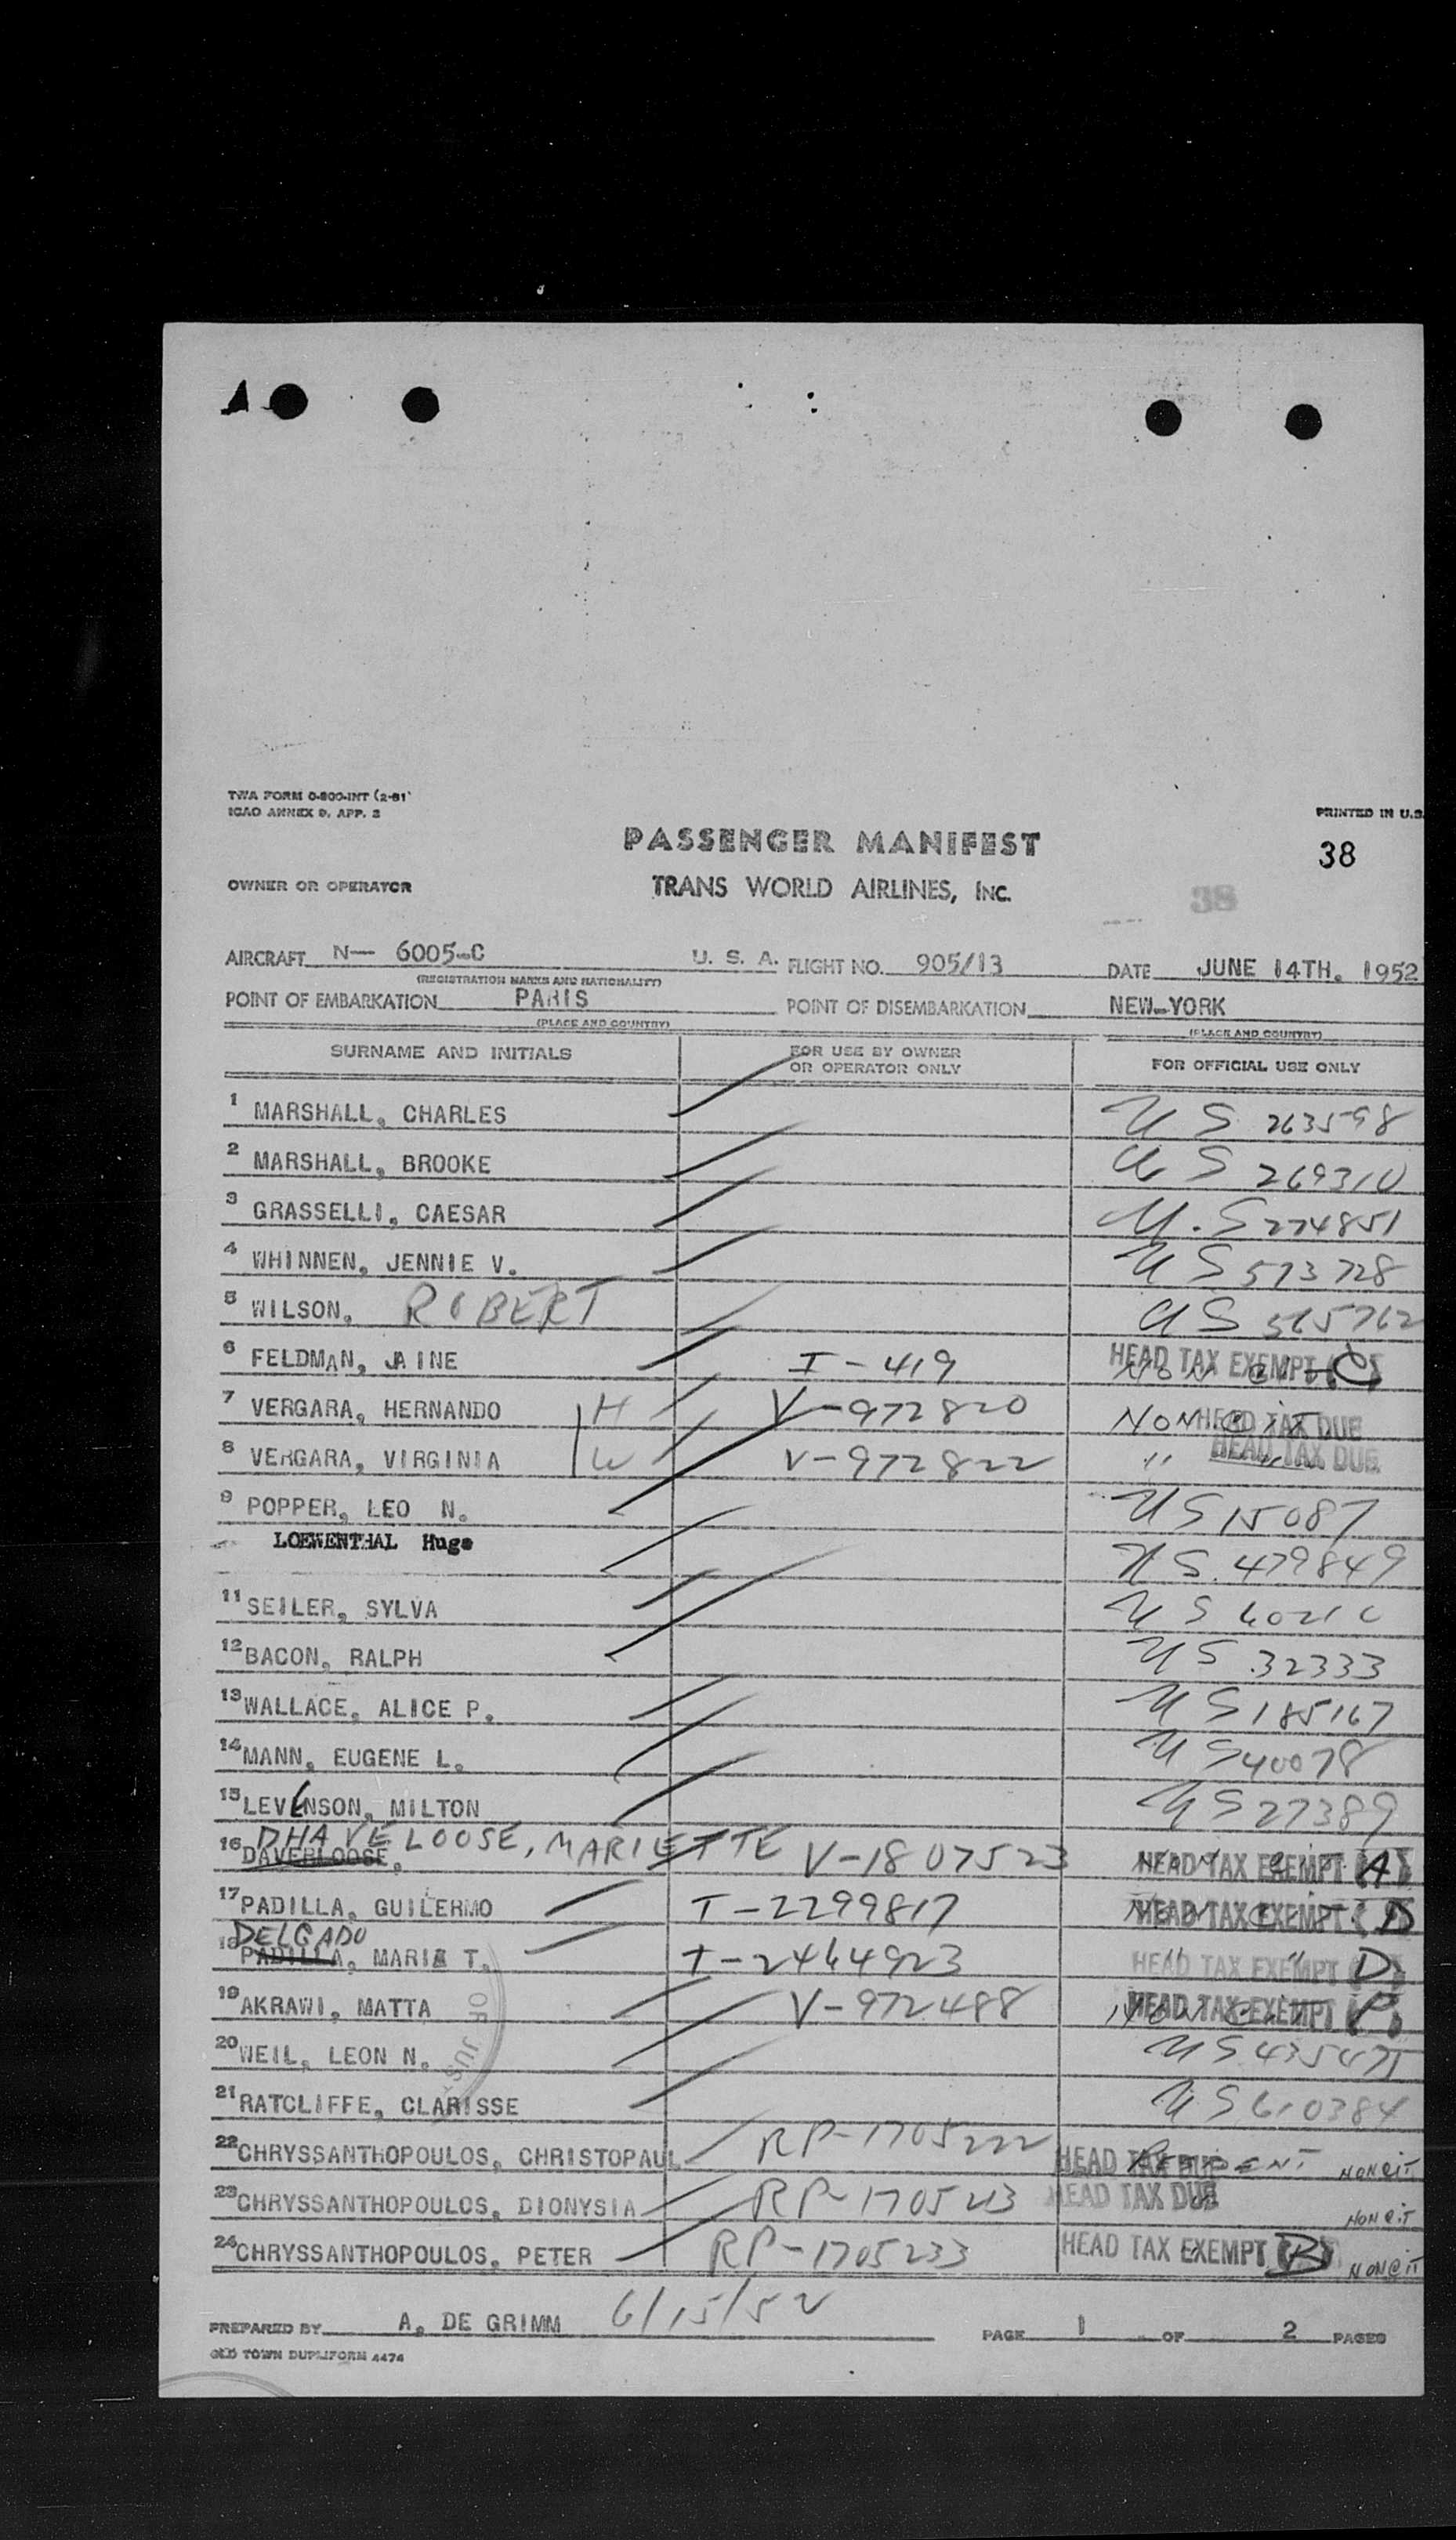 TWA FORM 0-800-INT (2-51)
ICAO ANNEX 9, APP. 3
PRINTED IN U.S.
PASSENGER MANIFEST
38
OWNER OR OPERATOR TRANS WORLD AIRLINES, INC. 38
AIRCRAFT N— 6005-C U. S. A. FLIGHT NO. 905/13 DATE JUNE 14TH. 1952
(REGISTRATION MARKS AND NATIONALITY)
POINT OF EMBARKATION PARIS POINT OF DISEMBARKATION NEW-YORK
(PLACE AND COUNTRY) (PLACE AND COUNTRY)
SURNAME AND INITIALS FOR USE BY OWNER OR OPERATOR ONLY FOR OFFICIAL USE ONLY
1 MARSHALL, CHARLES US 263598
2 MARSHALL, BROOKE US 269310
3 GRASSELLI, CAESAR U.S 274851
4 WHINNEN, JENNIE V. US 573728
5 WILSON, ROBERT US 565762
6 FELDMAN, JAINE I-419 HEAD TAX EXEMPT (C)
7 VERGARA, HERNANDO H V-972820 NON CIT HEAD TAX DUE
8 VERGARA, VIRGINIA W V-972822 " " HEAD TAX DUE
9 POPPER, LEO N. US 15087
LOEWENTHAL Hugo US. 479849
11 SEILER, SYLVA US 60210
12 BACON, RALPH US 32333
13 WALLACE, ALICE P. US 185167
14 MANN, EUGENE L. US 40078
15 LEVENSON, MILTON US 27389
DHAVELOOSE, MARIETTE
16 DAVERLOOSE, V-1807523 HEAD TAX EXEMPT (A)
17 PADILLA, GUILERMO I-2299817 HEAD TAX EXEMPT (D
DELGADO
18 PADILLA, MARIA T. I-2464923 " " HEAD TAX EXEMPT (D)
19 AKRAWI, MATTA V-972488 NON CIT HEAD TAX EXEMPT (P)
20 WEIL, LEON N. US 435475
OF JUS
21 RATCLIFFE, CLARISSE US 610384
22 CHRYSSANTHOPOULOS, CHRISTOPAUL RP-1705222 HEAD TAX DUE RESIDENT NONCIT
23 CHRYSSANTHOPOULOS, DIONYSIA RP-1705213 HEAD TAX DUE NONCIT
24 CHRYSSANTHOPOULOS, PETER RP-1705233 HEAD TAX EXEMPT (B) NONCIT
PREPARED BY A. DE GRIMM 6/15/52 PAGE 1 OF 2 PAGES
OLD TOWN DUPLIFORM 4474